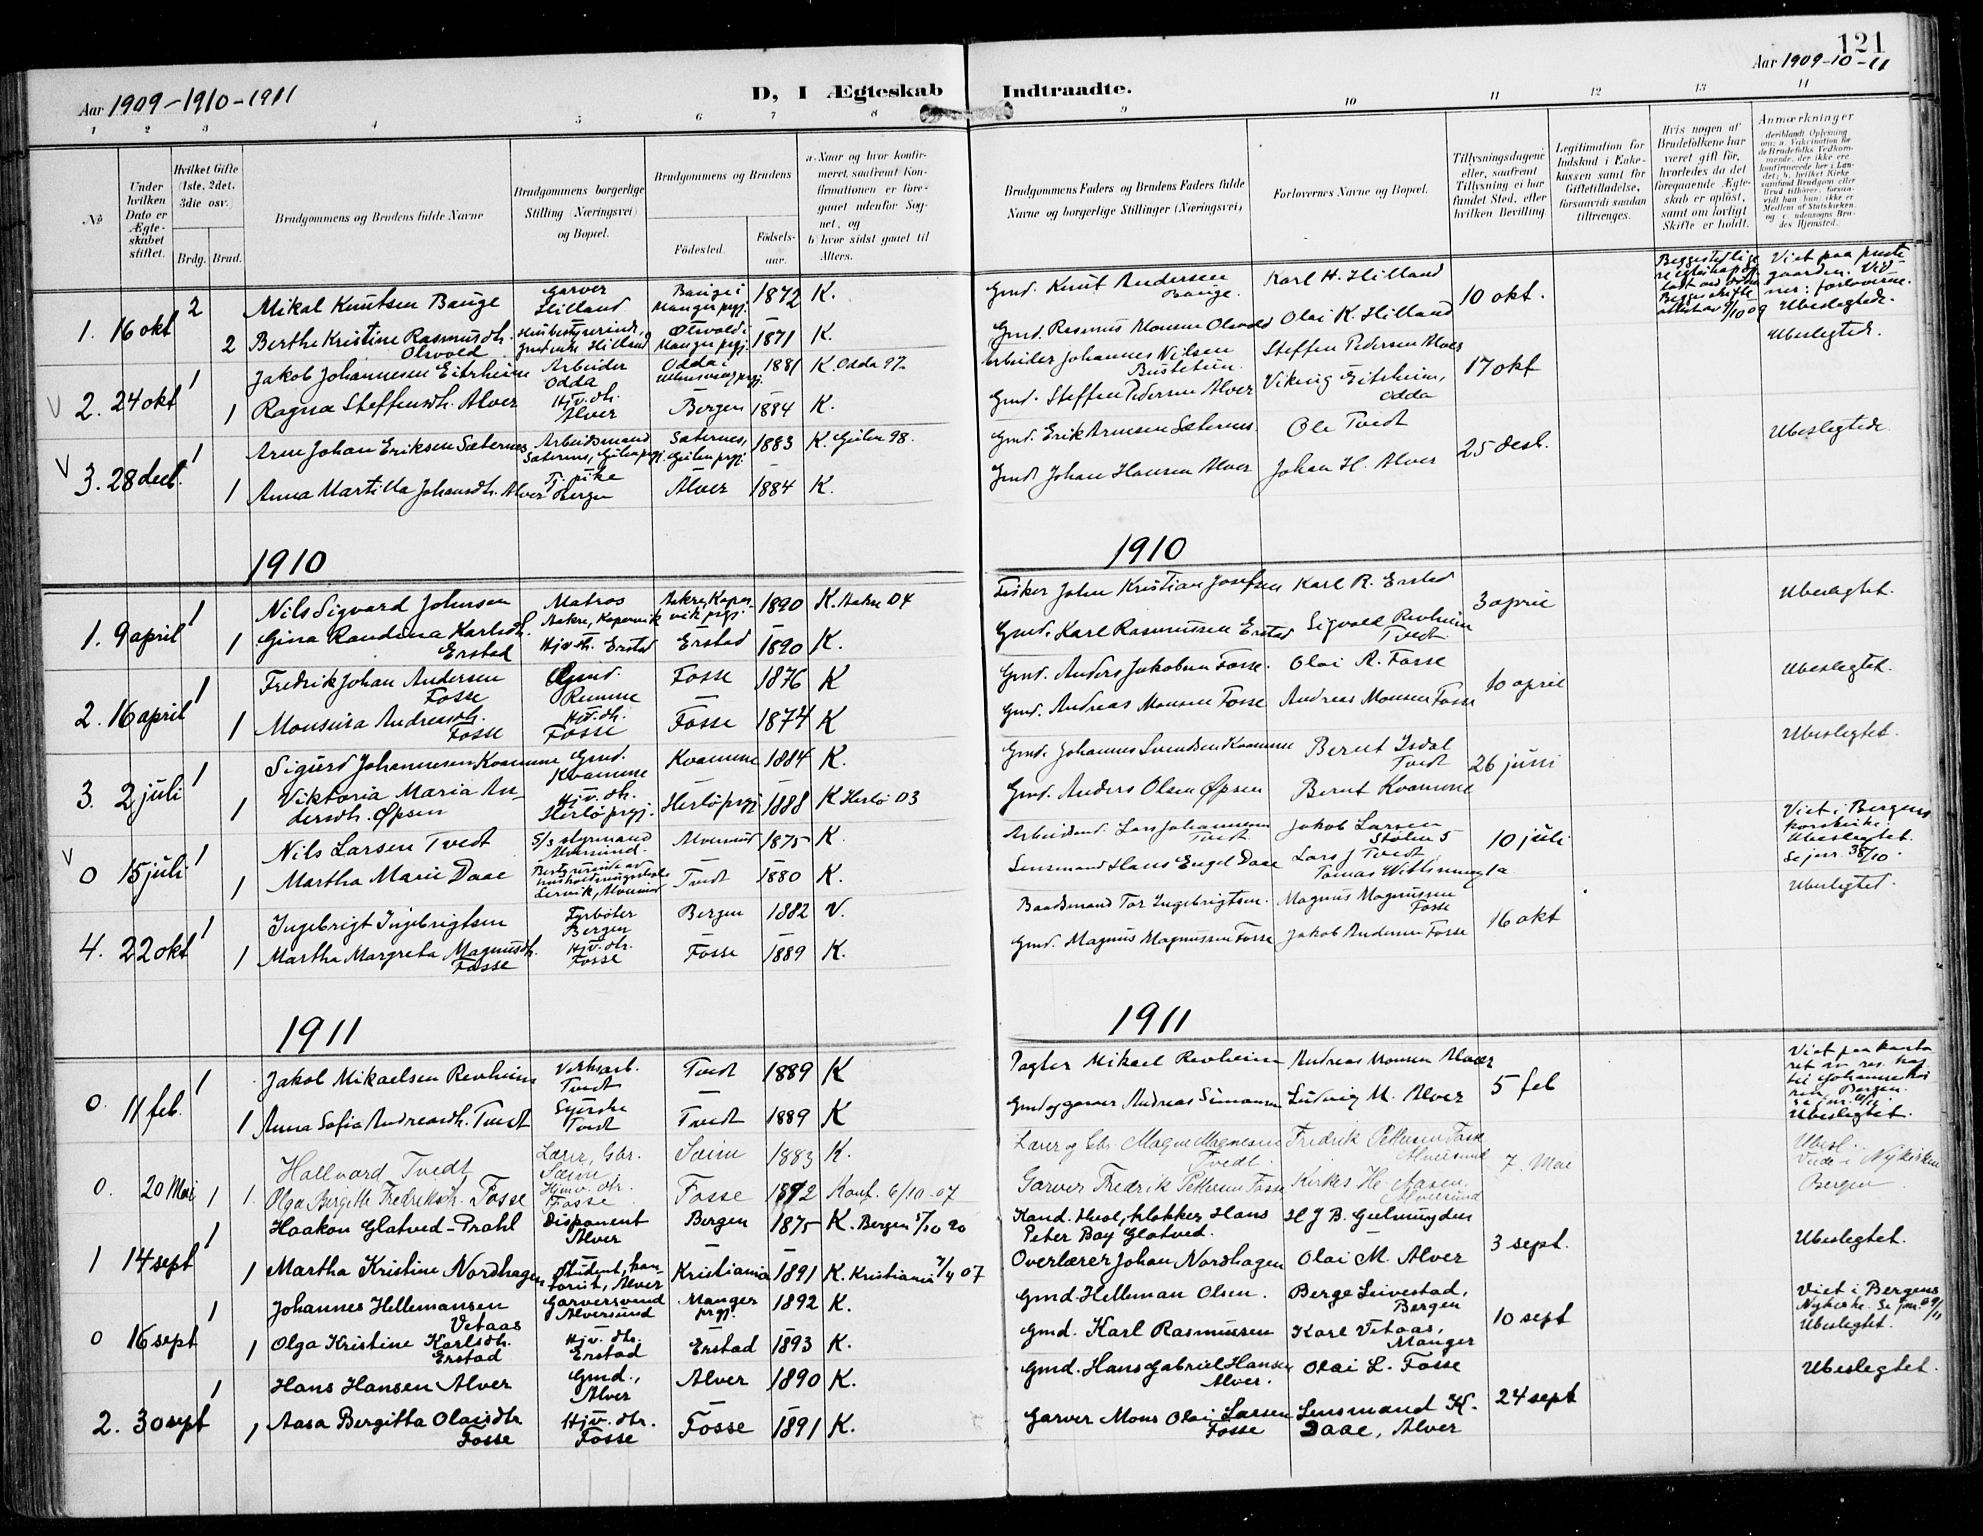 121
Aar 1909-1910-1911
D, I Ægteskab
Indtraadte.
Aar 1909-10-11
1 2 3 4 5 6 7 8 9 10 11 12 13 14
No
Under hvilken Dato er Ægteskabet stiftet.
Hvilket Gifte (1ste, 2det, 3die osv.)
Brdg. Brud.
Brudgommens og Brudens fulde Navne
Brudgommens borgerlige Stilling (Næringsvei) og Bopæl.
Brudgommens og Brudens
Födested.
Födselsaar.
a. Naar og hvor konfirmeret, saafremt Konfirmationen er foregaaet udenfor Sognet, og
b. hvor sidst gaaet til Alters.
Brudgommens Faders og Brudens Faders fulde Navne og borgerlige Stillinger (Næringsvei)
Forlovernes Navne og Bopæl.
Tillysningsdagene eller, saafremt Tillysning ei har fundet Sted, efter hvilken Bevilling
Legitimation for Indskud i Enkekassen samt for Giftetilladelse, forsaavidt saadan tiltrænges.
Hvis nogen af Brudefolkene har været gift för, hvorledes da det foregaaende Ægteskab er oplöst, samt om lovligt Skifte er holdt.
Anmærkninger
1. 16 okt 2 Mikal Knutsen Bauge Garver Hilland Bauge i Manger prgj. 1872 K. Gmd. Knut Andersen Bauge. Karl H. Hilland 10 okt. Viet paa prestegaarden. Vidner: forloverne. Ubeslegtede.
2 Berthe Kristine Rasmusdh. Olsvold Husbestyrerinde, Hilland Manger prgj. 1871 K. Gmd. Rasmus Monsen Olsvold Olai K. Hilland
2. 24 okt 1 Jakob Johannesen Eitrheim Arbeider Odda Odda i Ullensvang prgj. 1881 K. Odda 97. Arbeider Johannes Nilsen Steffen Pedersen Alver 17 okt Ubeslegtede.
1 Ragna Steffensdh. Alver Hjv. dh. Alver Bergen 1884 K. Gmd. Steffen Pedersen Alver Viking Eitrheim, Odda
3. 28 decb. 1 Arne Johan Eriksen Sæternes Arbeidsmand Sæternes, Gulen prgj. Sæternes, Gulen prgj. 1883 K. Gulen 98. Gmd. Erik Arnesen Sæternes Ole Tvedt 25 desb. Ubeslegtede.
1 Anna Martilla Johansdh. Alver Tj. pike Bergen Alver 1884 K. Gmd. Johan Hansen Alver Johan H. Alver
1910
1910
1. 9 april 1 Nils Sigvard Johnsen Matros Aakre, Kopervik Aakre, Kopervik prgj. 1890 K. Aakre 04 Fisker John Kristian Josefsen Karl R. Erstad 3 april Ubeslegtet.
1 Gina Randina Karlsdh. Erstad Hjv. dh. Erstad Erstad 1890 K. Gmd. Karl Rasmussen Erstad Sigvald Revheim Tvedt
2. 16 april 1 Fredrik Johan Andersen Fosse Gmd. Fosse 1876 K Gmd. Anders Jakobsen Fosse. Olai A. Fosse 10 april Ubeslegtet.
1 Monsina Andreasdh. Fosse Hjv. dh. Fosse Fosse 1874 K Gmd. Andreas Monsen Fosse Andreas Monsen Fosse
3. 2 juli 1 Sigurd Johannesen Kvamme Gmd. Kvamme Kvamme 1884 K. Gmd. Johannes Svendsen Kvamme Bernt Isdal Tvedt 26 juni Ubeslegtet.
1 Viktoria Maria Andersdh. Øpsen Hjv. dh. Herlö prgj. Herlö prgj. 1888 K Herlö 03 Gmd. Anders Olsen Øpsen Bernt Kvamme
0 15 juli 1 Nils Larsen Tvedt S/s styrmand Alversund. Alversund 1875 K. Arbeidsmd. Lars Johannesen Tvedt Jakob Larsen Stølen 5 10 juli Viet i Bergens korskirke. Ubeslegtet.
1 Martha Marie Daae Bestyrerinde av husholdningsskole Lervik, Alversund Tvedt 1880 K. Lensmand Hans Engel Daae Lars J Tvedt
4. 22 okt 1 Ingebrigt Ingebrigtsen Fyrbøter Bergen Bergen 1882 V. Baadsmand Tor Ingebrigtsen. Magnus Magnussen Fosse 16 okt Ubeslegtet.
1 Martha Margreta Magnusdh. Fosse Hjv. dh. Fosse Fosse 1889 K. Gmd. Magnus Magnussen Fosse Jakob Andersen Fosse
1911
1911
0. 11 feb. 1 Jakob Mikaelsen Revheim Verksarb. Tvedt Tvedt 1889 K Pagter Mikael Revheim Andreas Monsen Alver 5 feb Viet paa kontoret av res. kap. til Johanneskirken Bergen. Ubeslegtet.
1 Anna Sofia Andreasdh. Tvedt Syerske Tvedt Tvedt 1889 K Gmd og garver Andreas Simonsen Ludvig M. Alver
0. 20 Mai 1 Hallvard Tvedt Lærer, Gbr. Sæim Sæim 1883 K. Lærer og Gbr. Magne Magnesen Tvedt. Fredrik Pettersen Fosse Alversund 7. Mai Ubesl. Viede i Nykirken Bergen
1. Olga Bergitte Fredriksdh. Fosse Hjmv. dtr. Fosse Fosse 1892 Konf. 6/10-07 Garver Fredrik Pettersen Fosse
1 14 sept 1 Haakon Glatved-Prahl Disponent Alver Bergen 1875 K. Bergen 5/10 90 Kand. theol. klokker Hans Peter Bøy Glatved. H J B. Gulmuyden 3 sept. Ubeslegtet.
1 Martha Kristine Nordhagen student, kontorist, Alver Kristiania 1891 K. Kristiania 7/4 07 Overlærer Johan Nordhagen Olai M. Alver
0 16 sept 1 Johannes Hellemansen Vetaas Garversvend Alversund Manger prgj. 1892 K. Gmd Helleman Olsen. Berge Leivestad, Bergen 10 sept Viet i Bergens Nykirke. Ubeslegtet.
1 Olga Kristine Karlsdh. Erstad Hjv. dtr. Erstad Erstad 1893 K. Gmd. Karl Rasmussen Karl Vetaas, Manger
2. 30 sept 1 Hans Hansen Alver Gmd., Alver Alver 1890 K. Gmd. Hans Gabriel Hansen Alver. Olai L. Fosse 24 sept Ubeslegtet.
1 Aasa Bergitta Olaisdtr Fosse Hjv. dtr. Fosse Fosse 1891 K. Garver Mons Olai Larsen Fosse Lensmand K. Daae, Alver